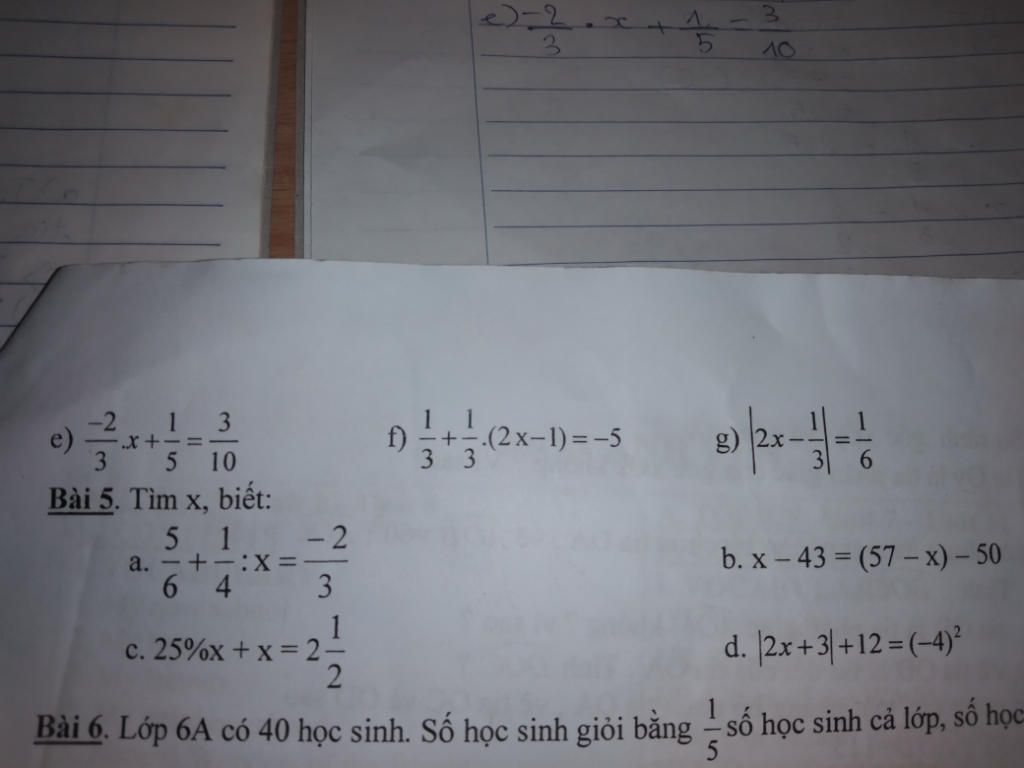 e) -2/3 . x + 1/5 = 3/10
e) -2/3 .x + 1/5 = 3/10 f) 1/3 + 1/3 .(2x–1) = –5 g) |2x – 1/3| = 1/6
Bài 5. Tìm x, biết:
a. 5/6 + 1/4 : x = -2/3 b. x – 43 = (57 – x) – 50
c. 25%x + x = 2 1/2 d. |2x+3| +12 = (–4)²
Bài 6. Lớp 6A có 40 học sinh. Số học sinh giỏi bằng 1/5 số học sinh cả lớp, số học